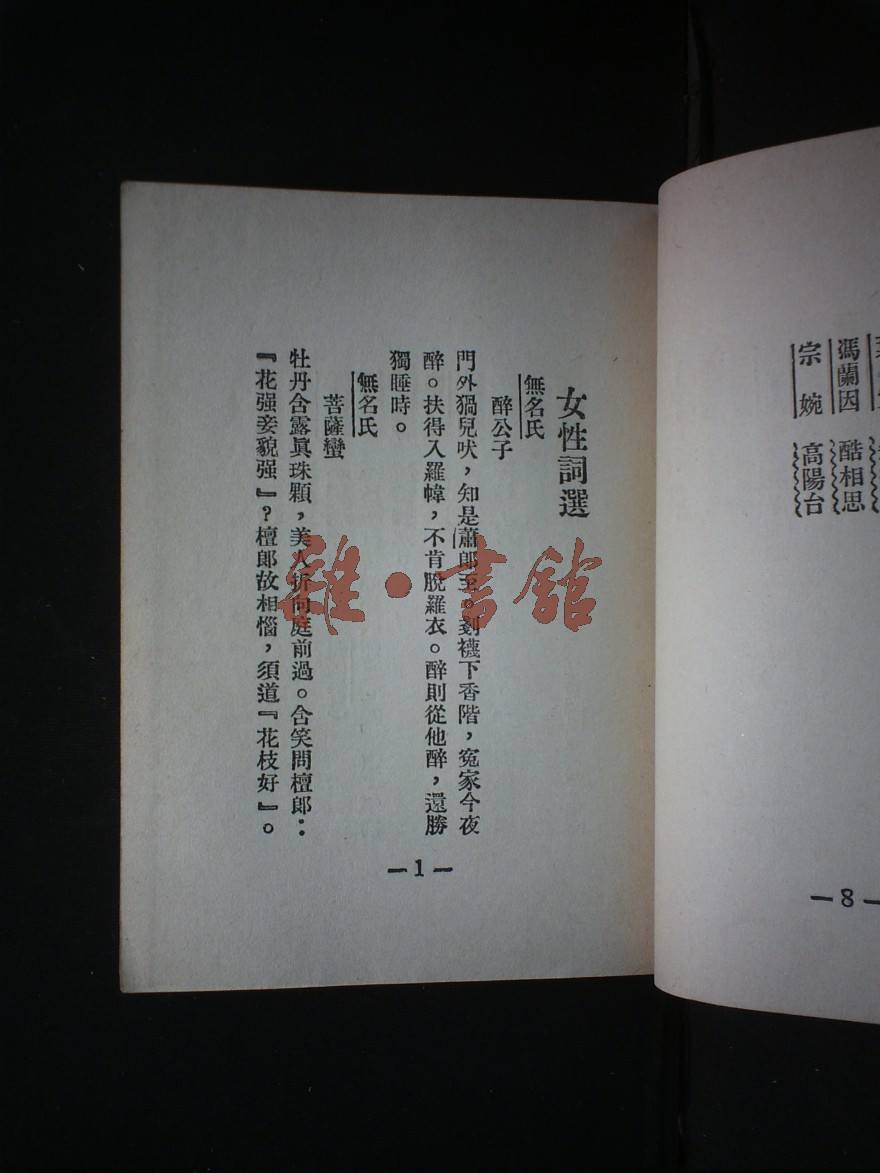 馮蘭因 酷相思
宗婉 高陽台
—8—
女性詞選
無名氏
醉公子
門外猧兒吠，知是蕭郎至。剗襪下香階，寃家今夜
醉。扶得入羅幃，不肯脫羅衣。醉則從他醉，還勝
獨睡時。
無名氏
菩薩蠻
牡丹含露眞珠顆，美人折向庭前過。含笑問檀郎：
『花强妾貌强』？檀郎故相惱，須道『花枝好』。
—1—
雜·書館